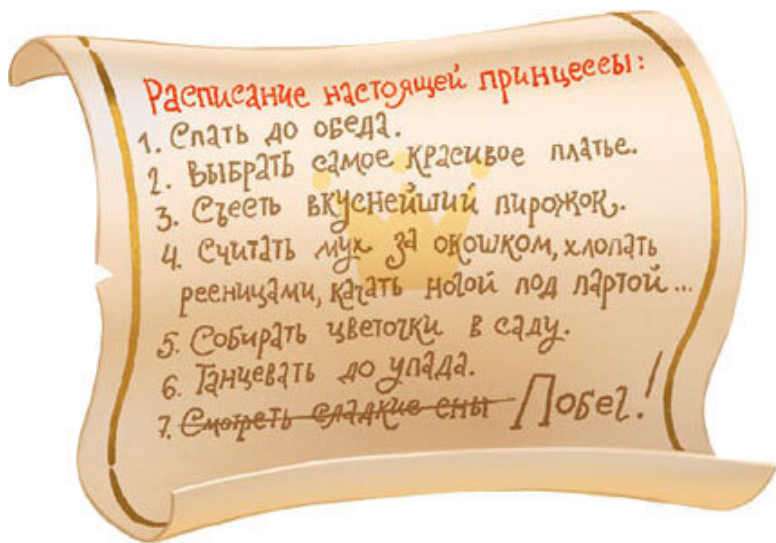 Расписание настоящей принцессы:
1. Спать до обеда.
2. Выбрать самое красивое платье.
3. Съесть вкуснейший пирожок.
4. Считать мух за окошком, хлопать
ресницами, качать ногой под партой...
5. Собирать цветочки в саду.
6. Танцевать до упада.
7. Смотреть сладкие сны Побег!